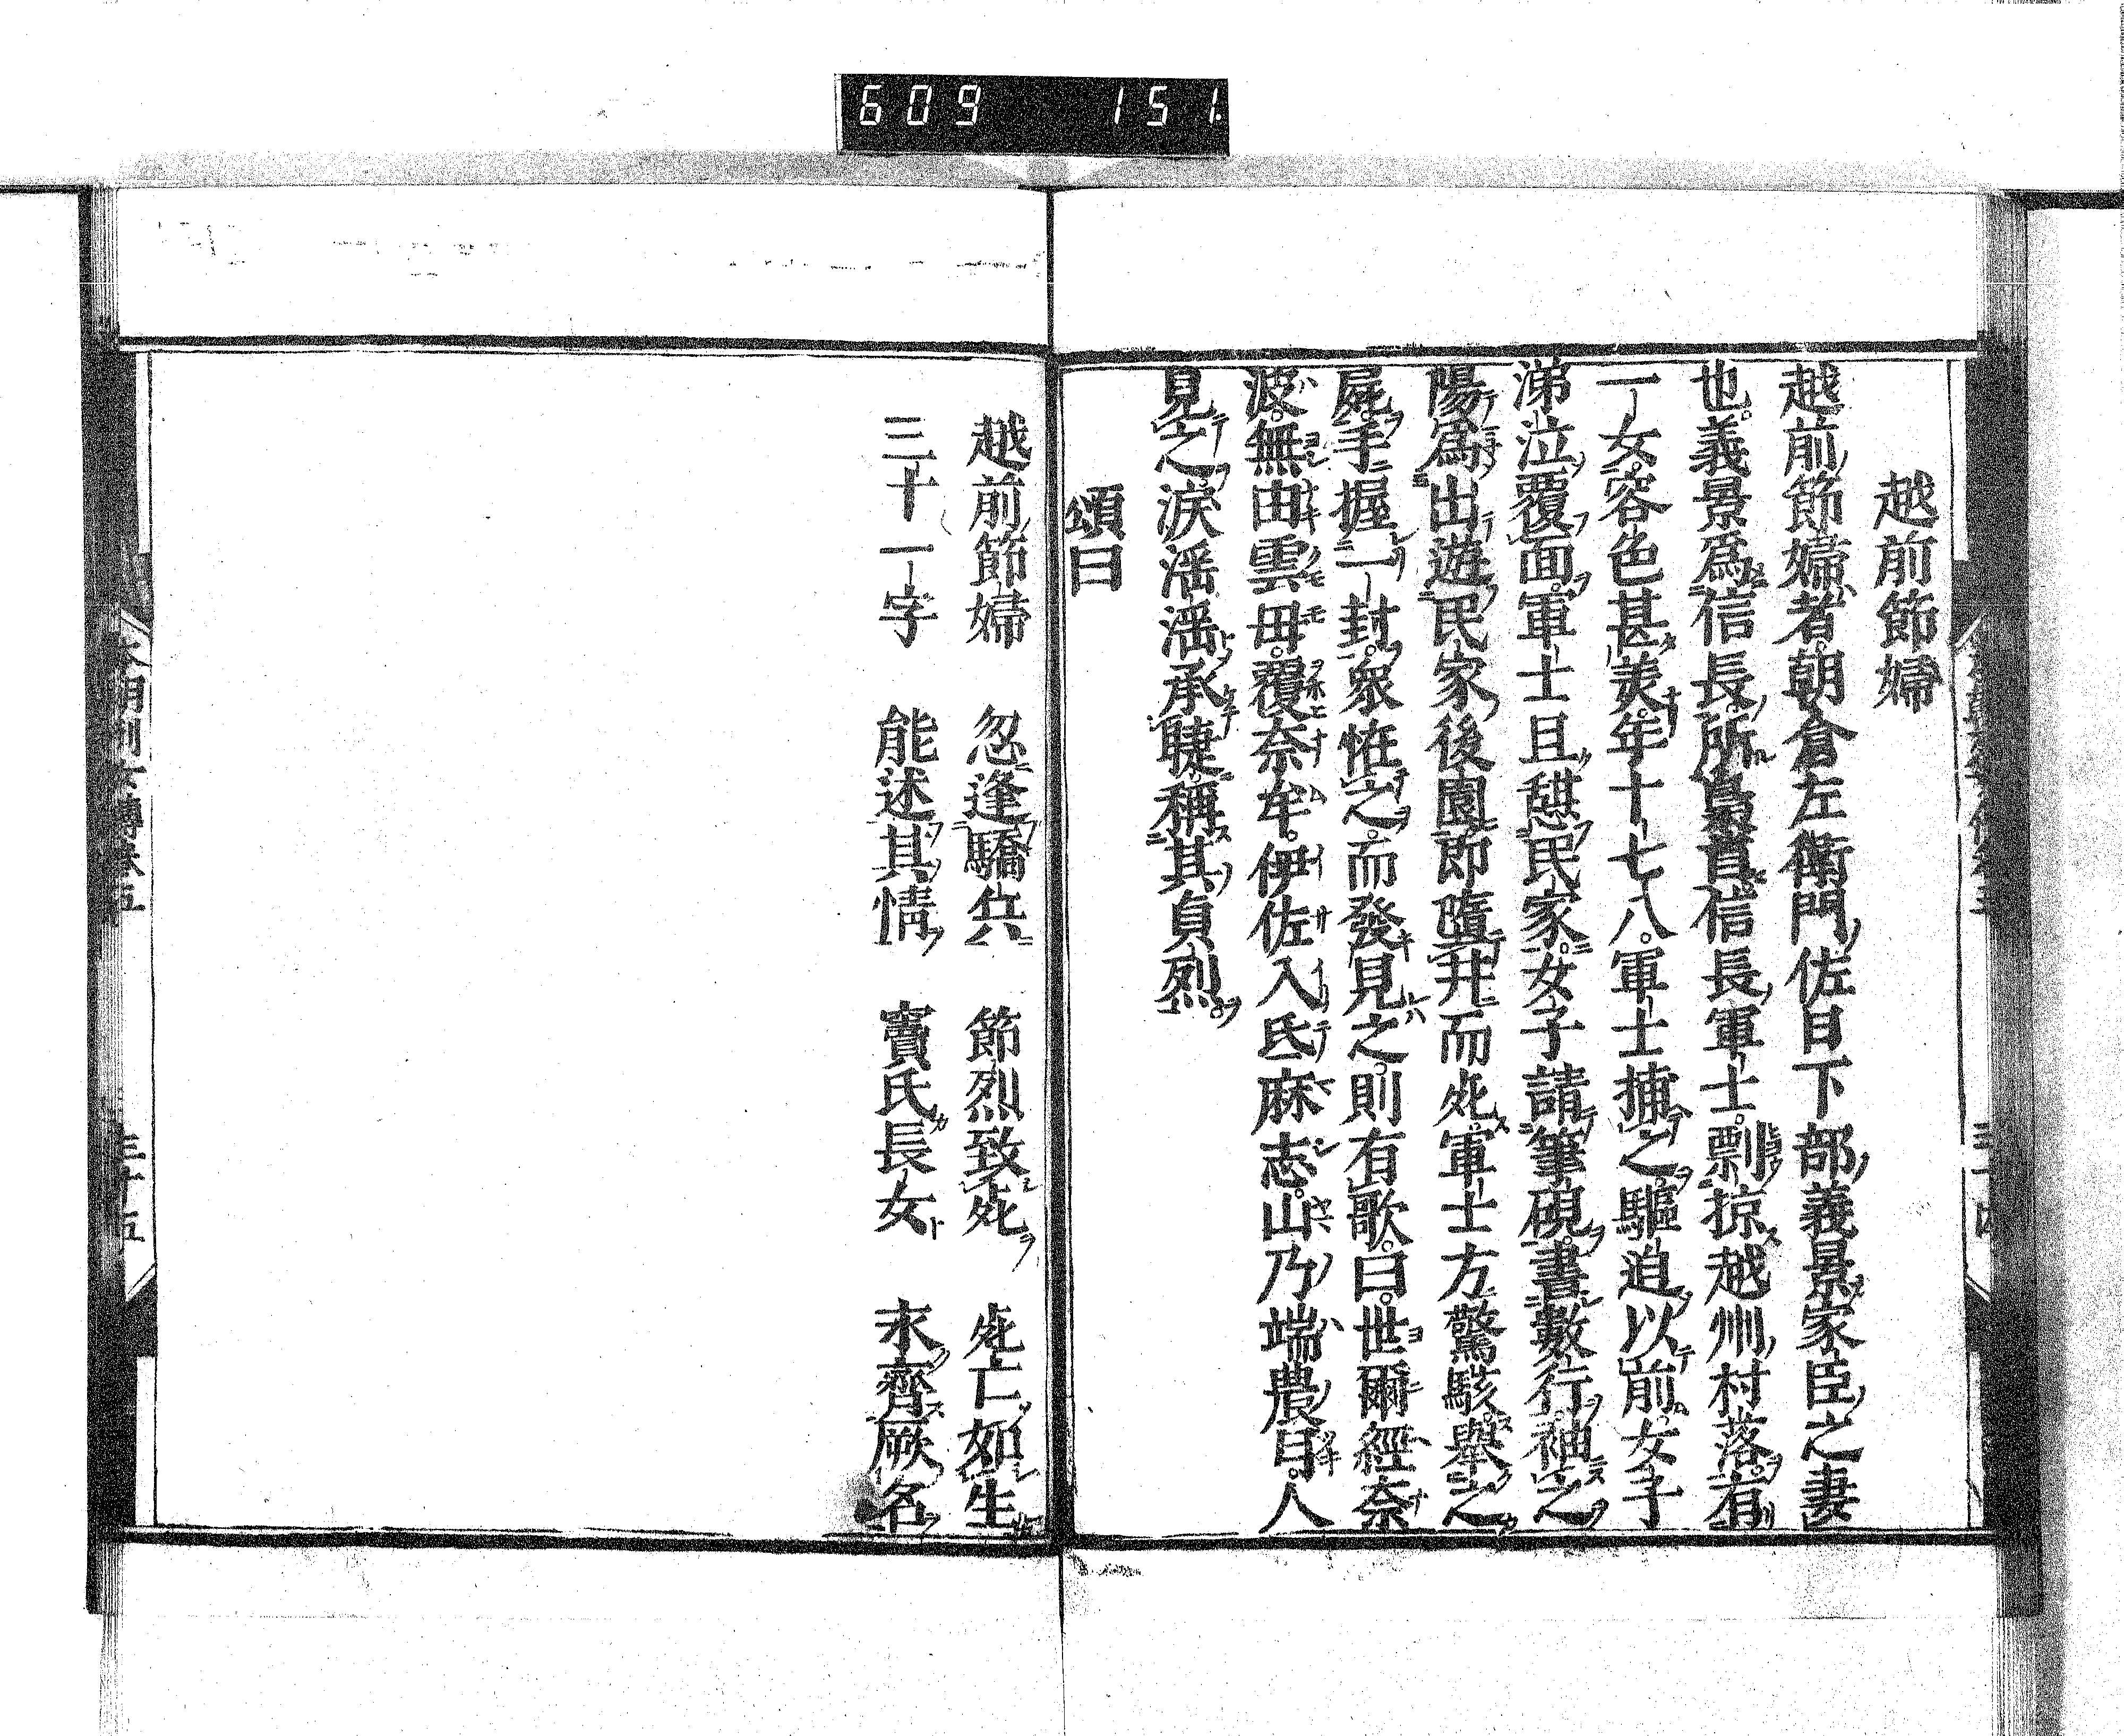 609 151.
越前節婦
越前節婦者。朝倉左衛門佐日下部義景家臣之妻
也。義景爲信長所梟首。信長軍士。剽掠越州村落。有
一女。容色甚美。年十七八。軍士捕之驅迫以前女子
涕泣覆面。軍士且頹民家。女子請筆硯。書數行。袖之
陽爲出遊民家後園。卽墮井而死。軍士方驚駭。擧之
屍。手握一封。衆恠之。而發見之。則有歌。曰。世爾經奈
波。無由雲毋。覆奈牟。伊佐入氐麻志。山乃端農月。人
見之淚滛滛承睫。稱其貞烈。
頌曰
越前節婦 忽逢驕兵 節烈致死 死亡如生
三十一字 能述其情 竇氏長女 永齊厥名
本朝列女傳卷五 三十五